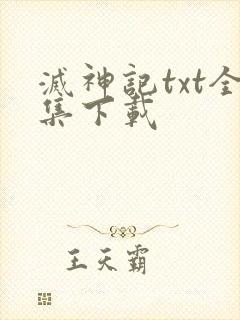 滅神記txt全
集下載
王天霸